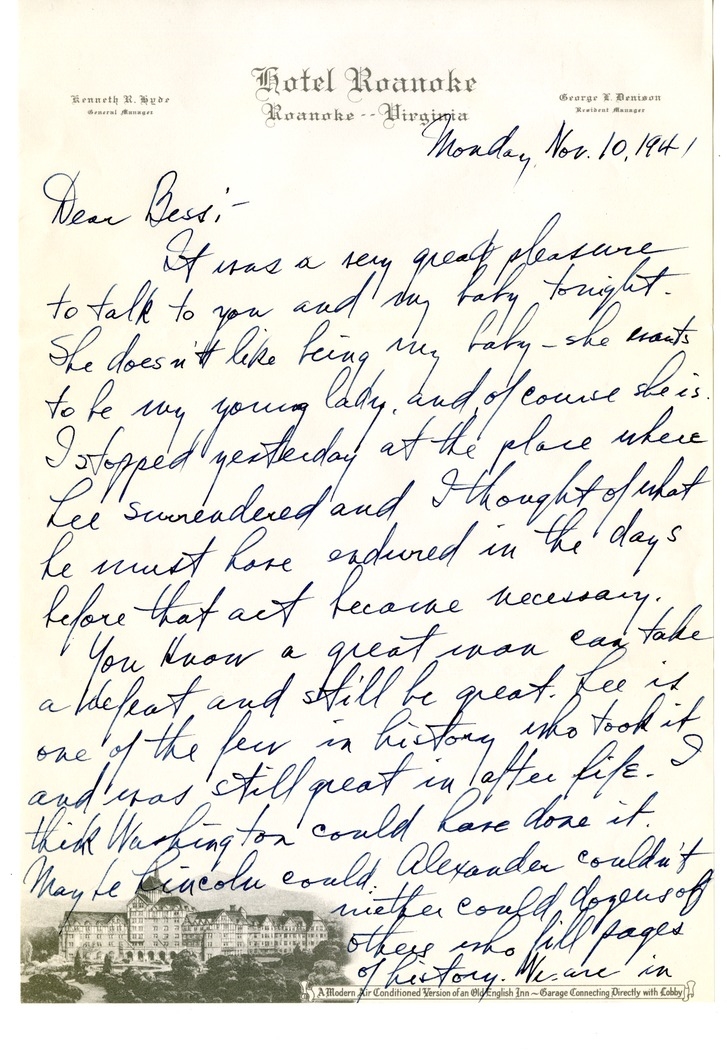 Hotel Roanoke
Kenneth R. Hyde
General Manager
Roanoke -- Virginia
George L. Denison
Resident Manager
Monday, Nov. 10, 1941
Dear Bess:-
It was a very great pleasure
to talk to you and my baby tonight.
She doesn't like being my baby - she wants
to be my young lady, and, of course she is.
I stopped yesterday at the place where
Lee surrendered and I thought of what
he must have endured in the days
before that act became necessary.
You know a great man can take
a defeat and still be great. Lee is
one of the few in history who took it
and was still great in after life. I
think Washington could have done it.
Maybe Lincoln could. Alexander couldn't
niether could dozens of
others who fill pages
of history. We are in
A Modern Air Conditioned Version of an Old English Inn ~ Garage Connecting Directly with Lobby